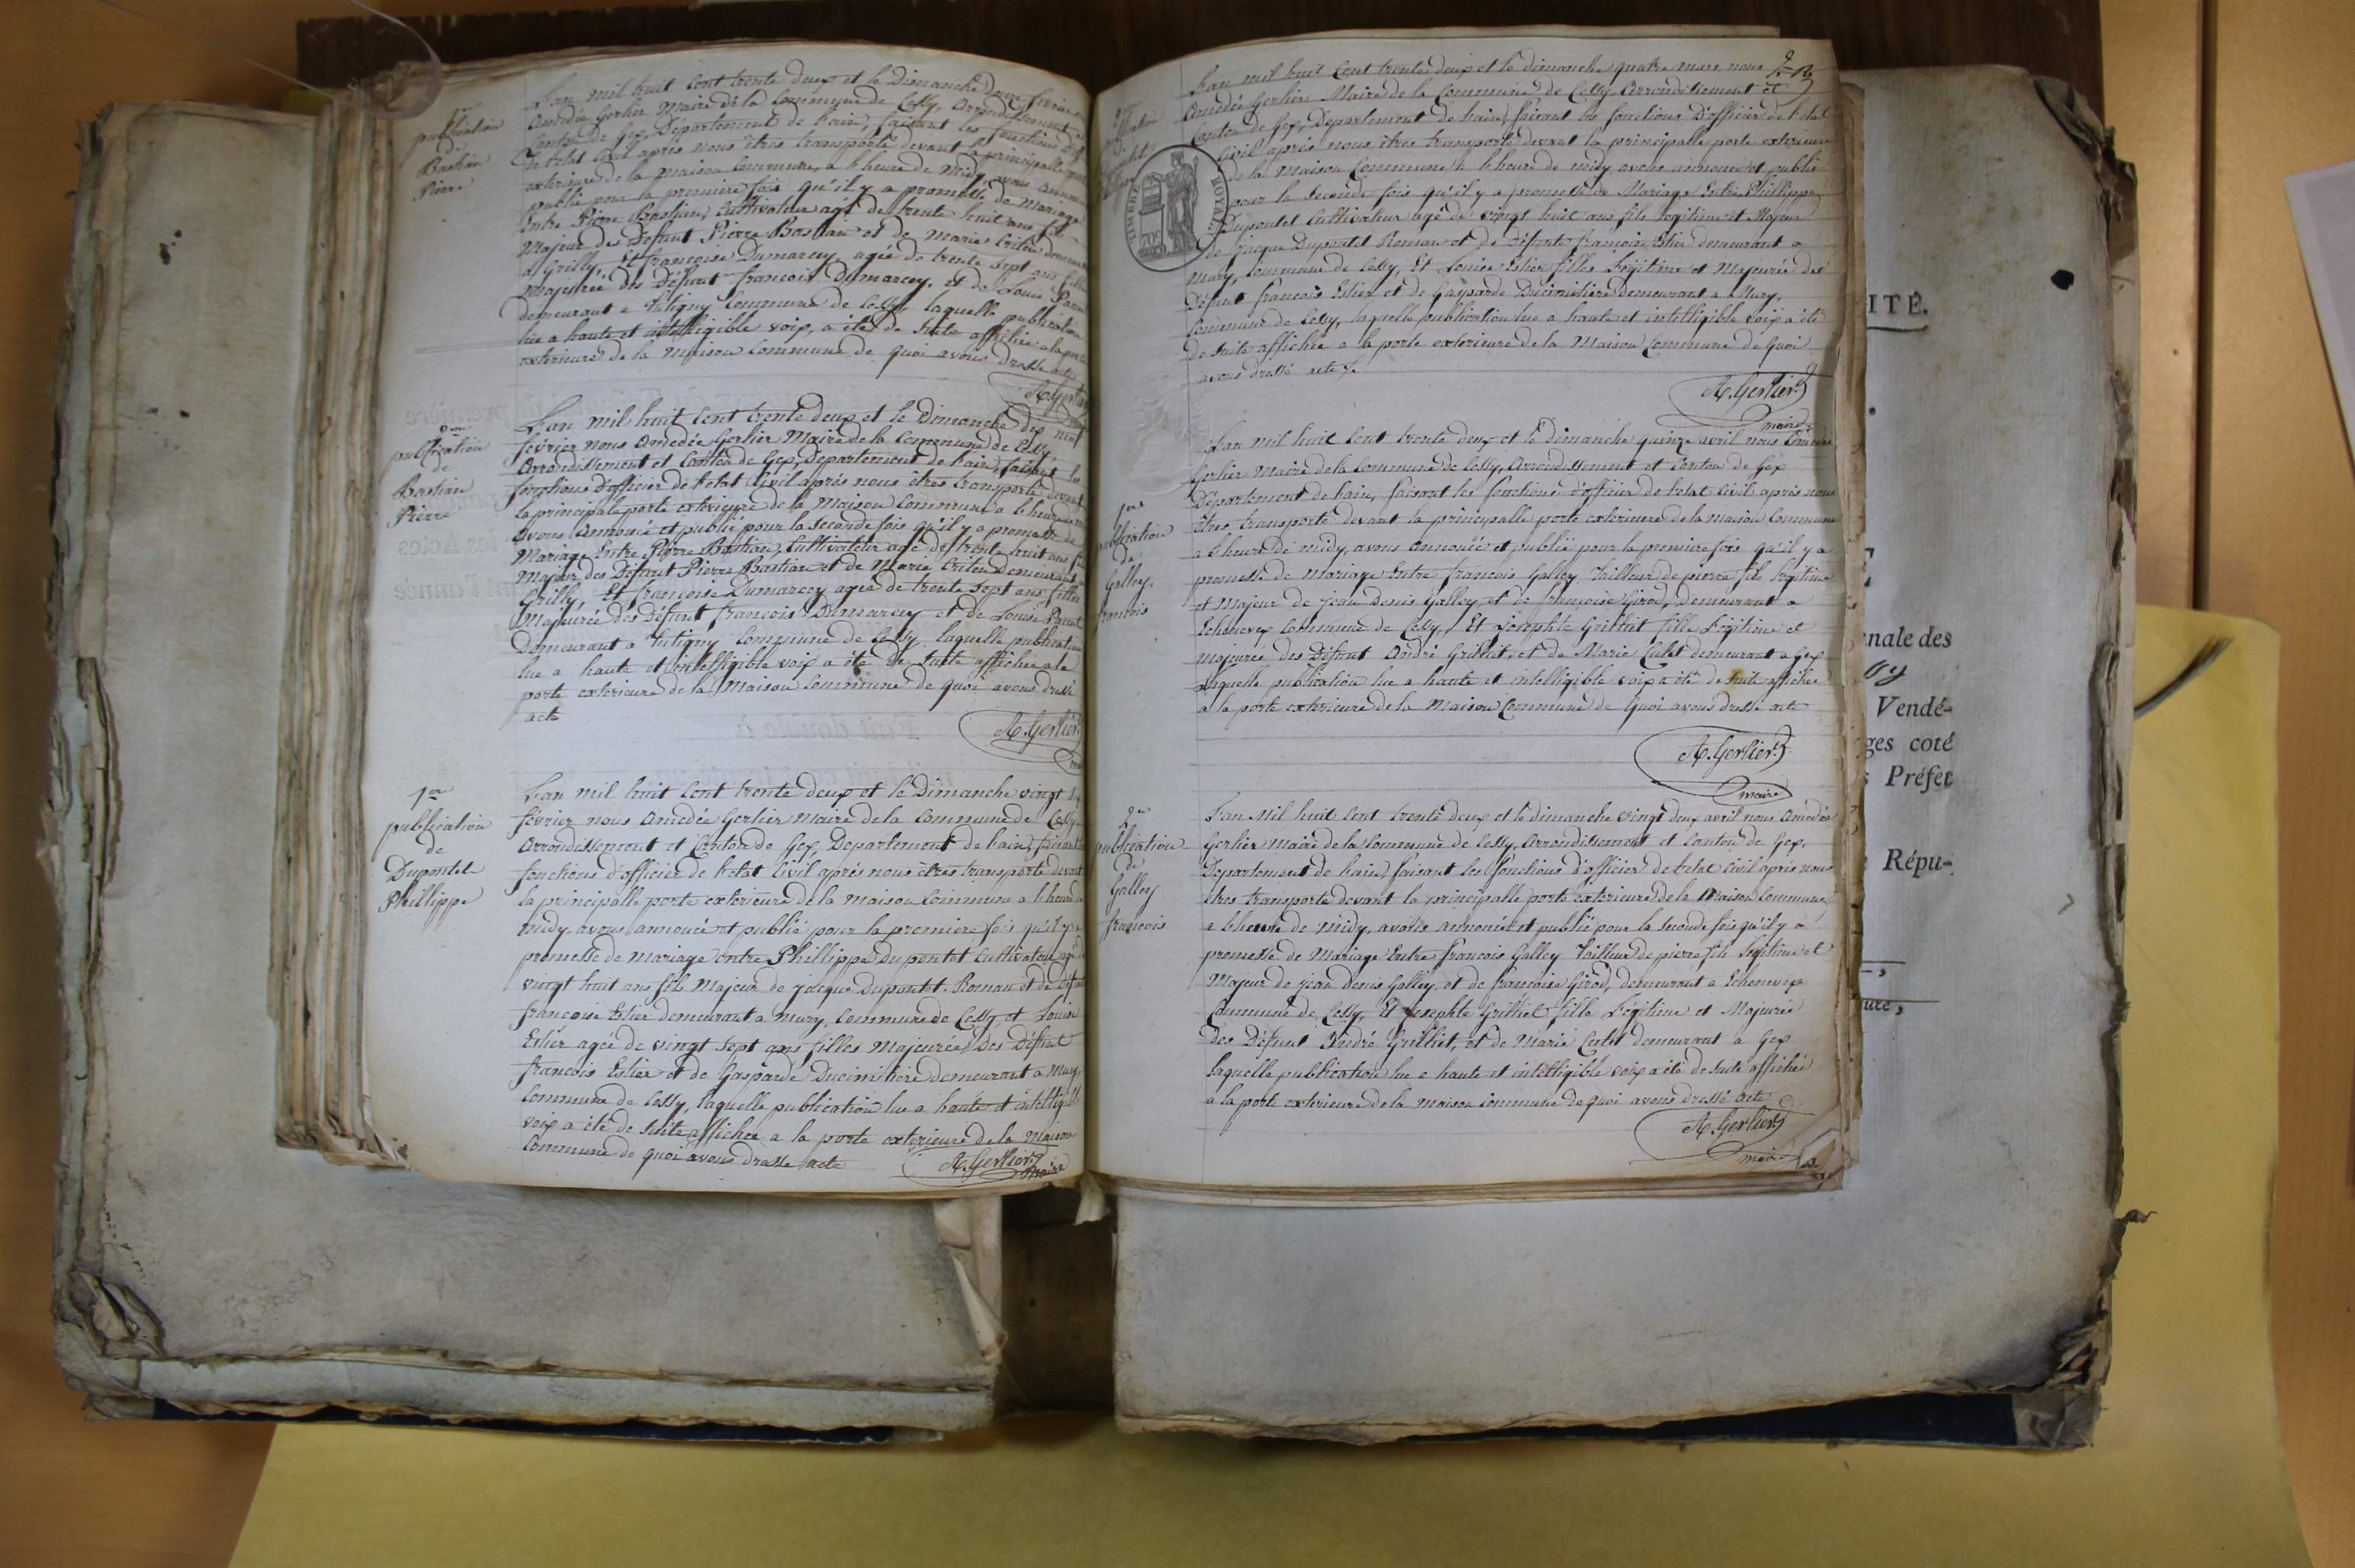 1ere
publication
de
Bastian
Pierre
L'an mil huit cent trente deux et le Dimanche douze fevrier
Amédée Gerlier Maire de la Commune de Cessy, Arrondissement et
Canton de Gex, Département de l'ain, faisant les fonctions
de l'etat Civil après nous êtres transporté devant la principalle
exterieure de la maison Commune, a l'heure de midy, avons annoncé
publié pour la premiere fois qu'il y a promesse de Mariage
Entre Pierre Bastian, Cultivateur agé de trente huit ans fils
Majeur des Défunt Pierre Bastian et de Marie Critin demeurant
a Grilly, Et françoise Dumarcey agée de trente sept ans filles
majeurée des Défunt francois Dumarcey, et de Louise Panet
demeurant a Tutigny Commune de Cessy, laquelle publication
lue a haute et intelligible voix, a été de suite affichée a la porte
exterieure de la Maison Commune de quoi avons dressé acte
A. Gerlier
2eme
publication
de
Bastian
Pierre
L'an mil huit Cent trente deux et le Dimanche dix neuf
fevrier nous Amédée Gerlier Maire de la Commune de Cessy,
Arrondissement et Canton de Gex, Departement de l'ain, faisant les
fonctions d'officier de l'etat Civil après nous êtres transporté devant
la principale porte exterieure de la Maison Commune a l'heure de
avons annoncé et publié pour la seconde fois qu'il y a promesse de
Mariage Entre Pierre Bastian, Cultivateur agé de trente huit ans fils
Majeur des Défunt Pierre Bastian et de Marie Critin demeurant a
Grilly, Et françoise Dumarcey agée de trente sept ans filles
Majeurée des Défunt francois Dumarcey et de Louise Panet
Demeurant a Tutigny Commune de Cessy laquelle publication
lue a haute et intelligible voix a été de suite affichée a la
porte exterieure de la Maison Commune de quoi avons dressé
acte
A. Gerlier
1ere
publication
de
Dupontet
Phillippe
L'an mil huit Cent trente deux et le Dimanche vingt six
fevrier nous Amédée Gerlier maire de la Commune de Cessy
Arrondissement et Canton de Gex, Departement de l'ain, faisant les
fonctions d'officier de l'etat Civil après nous êtres transporté devant
la principalle porte exterieure de la maison Commune a l'heure de
midy, avons annoncé et publié pour la premiere fois qu'il y a
promesse de mariage entre Phillippe Dupontet Cultivateur agé
vingt huit ans fils Majeur de jacque Dupontet Roman et de défunte
francoise Estier demeurant a mury, Commune de Cessy, et Louise
Estier agée de vingt sept ans filles Majeurée des Défunt
francois Estier et de Gasparde Ducimitiere demeurant a Mury
Commune de Cessy, laquelle publication lue a haute et intelligible
voix a été de suite affichée a la porte exterieure de la Maison
Commune de quoi avons dressé acte
A. Gerlier
maire
L'an mil huit Cent trente deux et le dimanche quatre mars nous
Amédée Gerlier Maire de la Commune de Cessy Arrondissement et
Canton de Gex, Departement de l'ain, faisant les fonctions D'officier de l'etat
Civil après nous êtres transporté devant la principalle porte exterieure
de la maison Commune a l'heure de midy avons annoncé et publié
pour la seconde fois qu'il y a promesse de Mariage Entre Phillippe
Dupontet Cultivateur agé de vingt huit ans fils légitime et Majeur
de jacque Dupontet Roman et de Défunte francoise Estier demeurant a
Mury, Commune de Cessy, Et Louise Estier filles Légitime et Majeurée des
Défunt francois Estier et de Gasparde Ducimitiere demeurant a Mury,
Commune de Cessy, laquelle publication lue a haute et intelligible voix a été
de suite affichée a la porte exterieure de la Maison Commune de Quoi
avons dressé acte
TIMBRE ROYAL
70c
A. Gerlier
maire
1ere
publication
de
Galley
francois
L'an mil huit Cent trente deux et le dimanche quinze avril nous Amédée
Gerlier Maire de la Commune de Cessy, Arrondissement et Canton de Gex
Département de l'ain, faisant les fonctions d'officier de l'etat Civil après nous
êtres transporté devant la principalle porte exterieure de la maison Commune
a l'heure de midy, avons annoncé et publié pour la premiere fois qu'il y a
promesse de Mariage Entre francois Galley Tailleur de pierre fils légitime
et Majeur de jean Denis Galley, et de françoise Girod, Demeurant a
Echenevex Commune de Cessy, Et Josephte Grilliet fille Légitime et
majeurée des Défunt André Grilliet, et de Marie Culet demeurant a Gex
laquelle publication lue a haute et intelligible voix a été de suite affichée
a la porte exterieure de la Maison Commune de Quoi avons dressé acte
A. Gerlier
maire
2e
publication
de
Galley
francois
L'an Mil huit Cent trente deux et le dimanche vingt deux avril nous Amédée
Gerlier maire de la Commune de Cessy, Arrondissement et Canton de Gex,
Departement de l'ain, faisant les fonctions d'officier de l'etat Civil après nous
êtres transporté devant la principalle porte exterieure de la Maison Commune
a l'heure de midy, avons annoncé et publié pour la seconde fois qu'il y a
promesse de Mariage Entre francois Galley Tailleur de pierre fils légitime et
Majeur de jean Denis Galley, et de francoise Girod, demeurant a Echenevex
Commune de Cessy, Et Josephte Grilliet fille Légitime et Majeurée
des Défunt André Grilliet, et de Marie Culet demeurant a Gex
laquelle publication lue a haute et intelligible voix a été de suite affichée
a la porte exterieure de la maison Commune de quoi avons dressé acte
A. Gerlier
maire
ITÉ.
nale des
Vendé-
ges coté
Préfet
Répu-